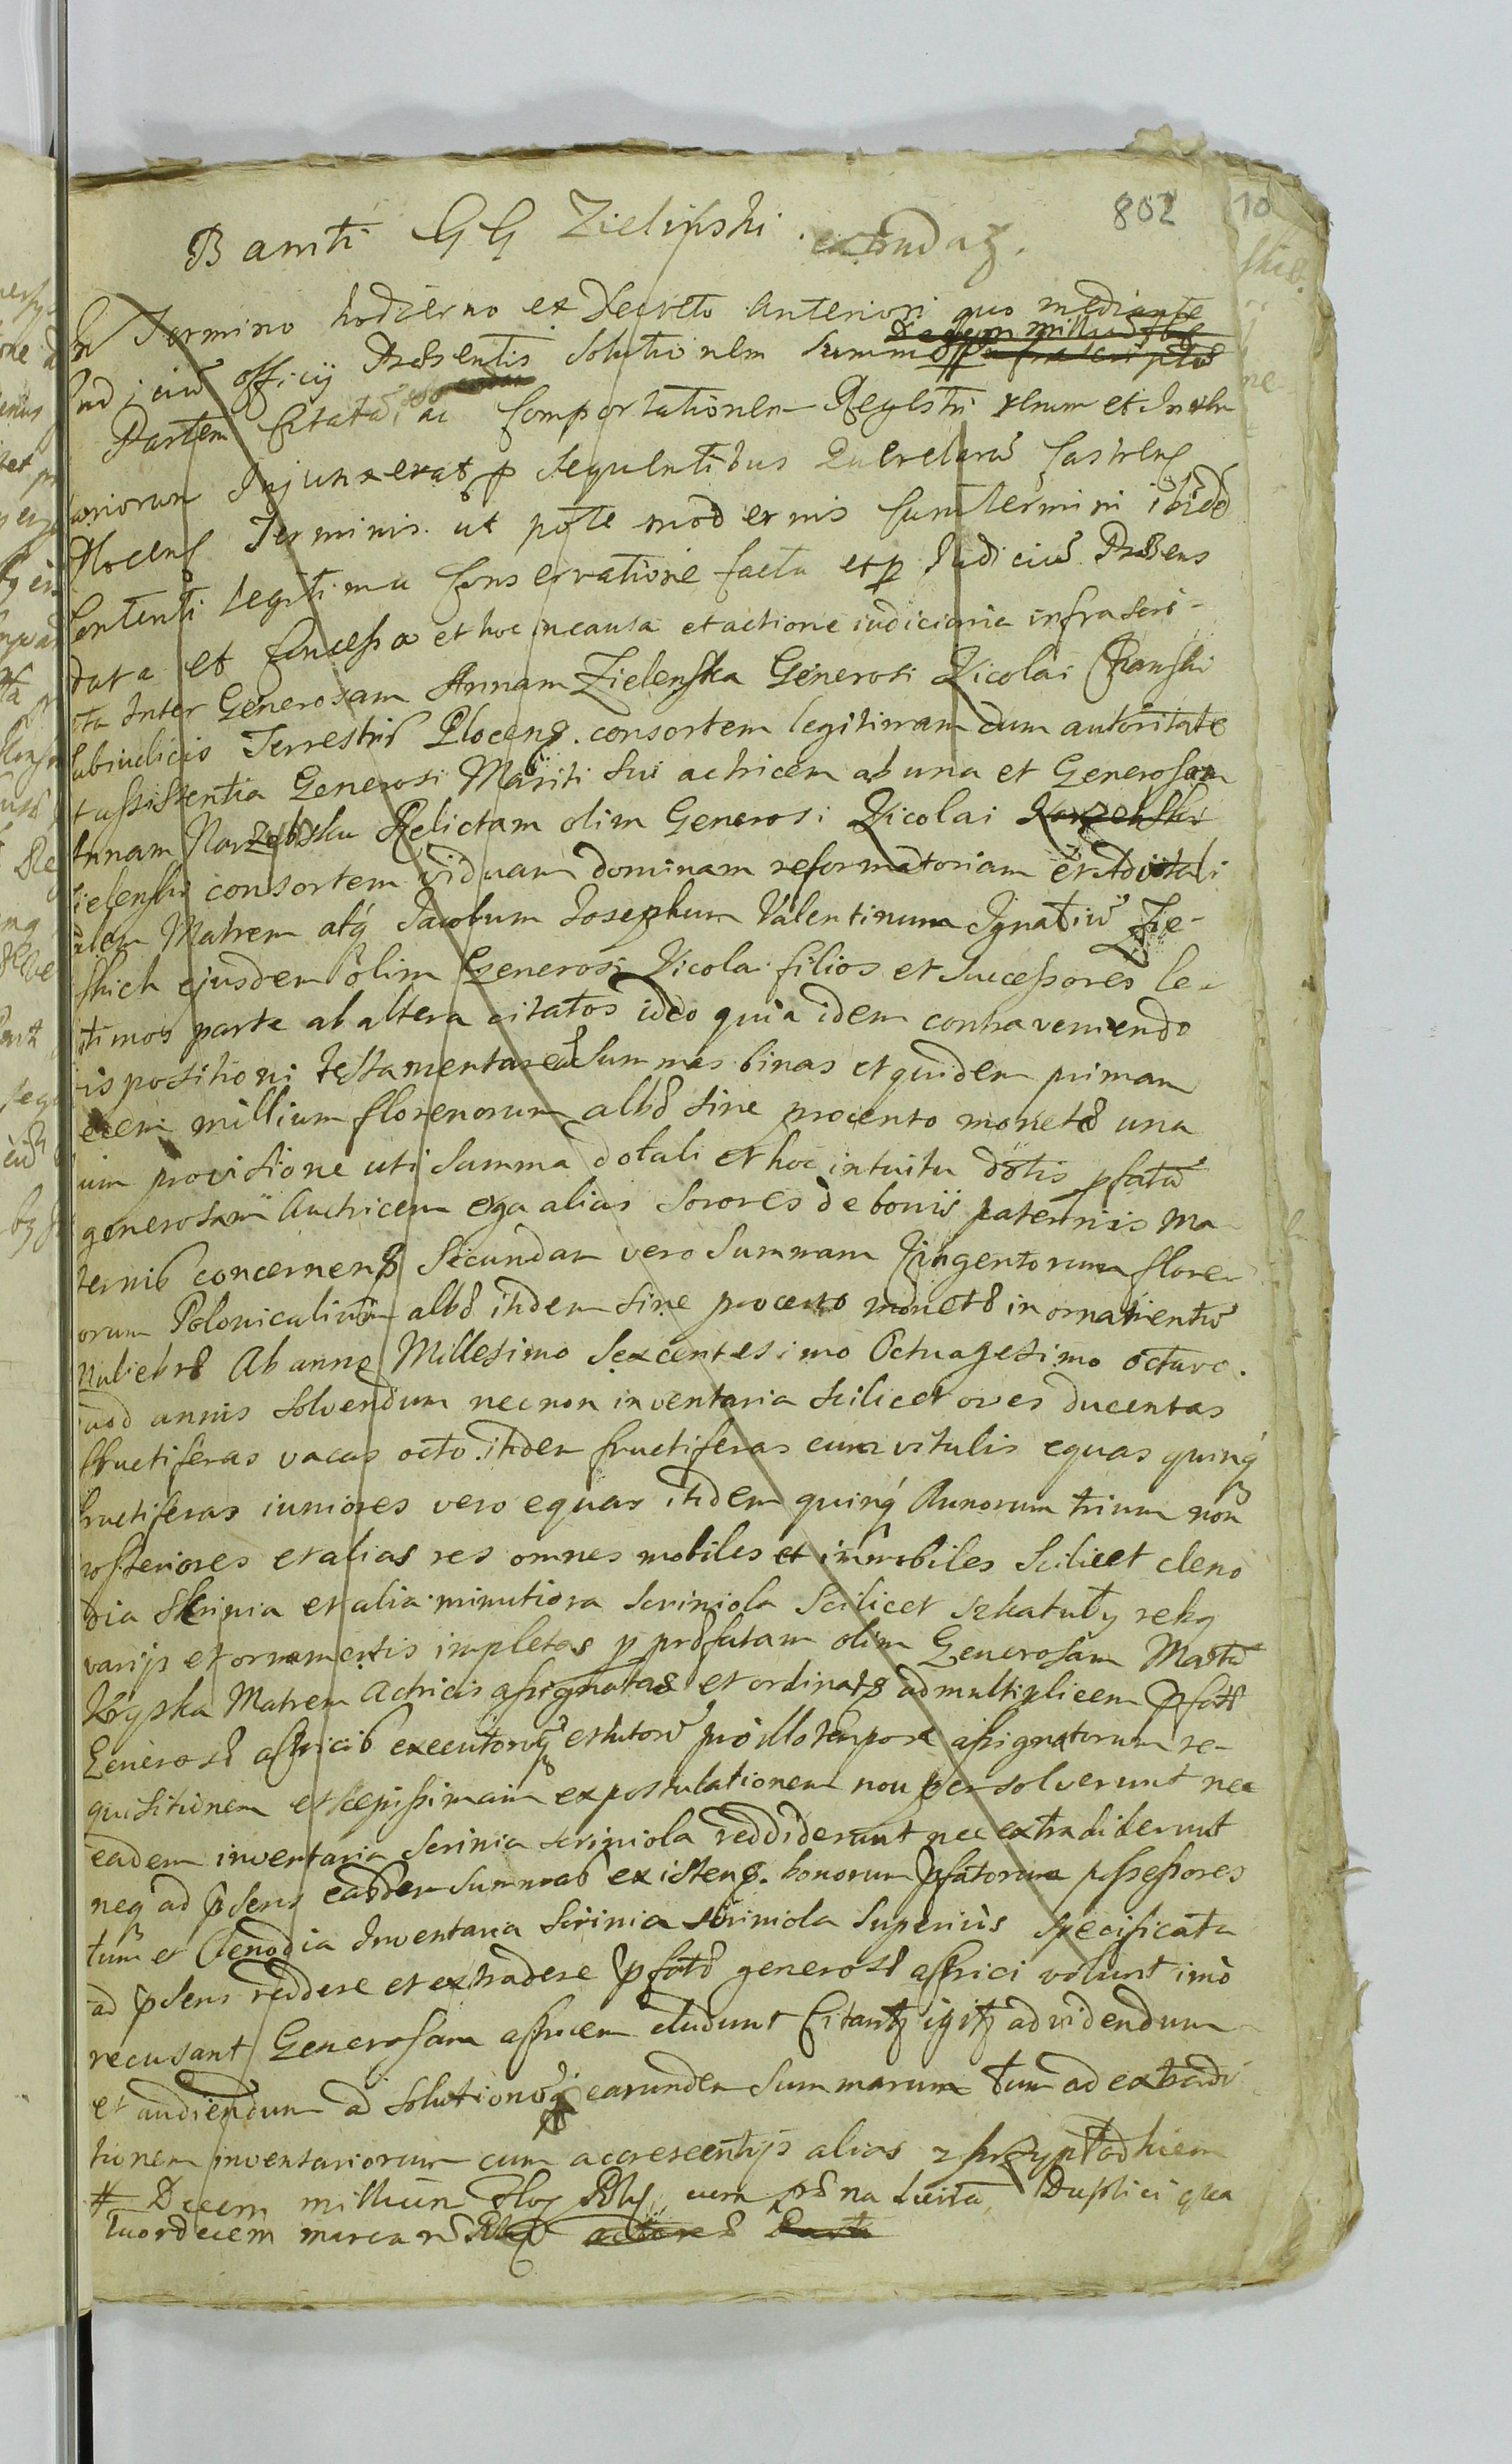 802 10
Banti GG Zielinski extrudaz.
In Termino hodierno ex Decreto Anteriori quo mediante
Decem milliu
Judiciu officij Præsentis Solutionem Summæ infrascriptæ
Partem Citatã, ac Comportationem Regestri rerum et Inven
tariorum Injunxerat p sequentibus Querelarũ Castren
Plocens Terminis ut pote modernis cum termini ibidẽ
Contenti legitima Conservatione facta et p Judiciũ Præsens
data et Concessa et hoc in causa et actione iudiciaria infrascri-
pta Inter Generosam Annam Zielenska Generosi Nicolai Chanski
Subiudicis Terrestris Plocens. consortem legitimam cum autoritate
et assistentia Generosi Mariti sui actricem ab una et Generosam
Annam Narzebska Relictam olim Generosi Nicolai Narzebski
Zielenski consortem viduam dominam reformatoriam et Advitali
talem Matrem atq Jacobum Josephum Valentinum Ignatiũ Zie-
skich ejusdem olim Generosi Nicolai filios et Successores le-
itimos parte ab altera citatos ideo quia idem contraveniendo
dispositioni testamentareæ Summas binas et quidem primam
decem millium florenorum albæ sine procento monetæ una
cum provisione uti Summa dotali et hoc intuitu dotis pfatã
generosam Auctricem erga alias Sorores de bonis paternis ma-
ternis concernens Secundam vero Summam Qingentorum flore-
norum Polonicaliũm albæ itidem sine procento monetæ in ornamentũ
muliebræ Ab anno Millesimo Sexcentesimo Octuagesimo octavo.
quod annis solvendum necnon inventaria scilicet oves ducentas
fructiferas vacas octo itidem fructiferas cum vitulis equas quinq
fructiferas iuniores vero equas itidem quinq Annorum trium non
posteriores et alias res omnes mobiles et immobiles Scilicet cleno
dia Skrinia et alia minutiora scriniola Scilicet szkatuły reby
varijs et ornamentis impletas p præfatam olim Generosam Martã
Kryska Matrem Actricis assignatas et ordinatæ ad multiplicem pfatæ
Generosæ actricis executorũq et tutorũ pro illo tempore assignatorum re-
quisitionem et sepissimam expostulationem non persolverunt nec
eadem inventaria Scrinia scriniola reddiderunt nec extradiderunt
neq ad psens easdem summas existens. bonorum pfatorum possessores
tum et Clenodia Inventaria Scrinia Scriniola Superius Specificata
ad psens reddere et extradere pfatæ generosæ actrici volunt imò
recusant Generosam actricem eludunt Citantz igitz ad videndum
et audiendum ad solutionẽq earundem Summarum tum ad extradi
tionem inventariorum cum accrescentijs alias z przypłodkiem
# Decem milliũm Flor Pol cum pæna luita, Duplici qua
tuordecem marcarũ Pol actoreæ Parti